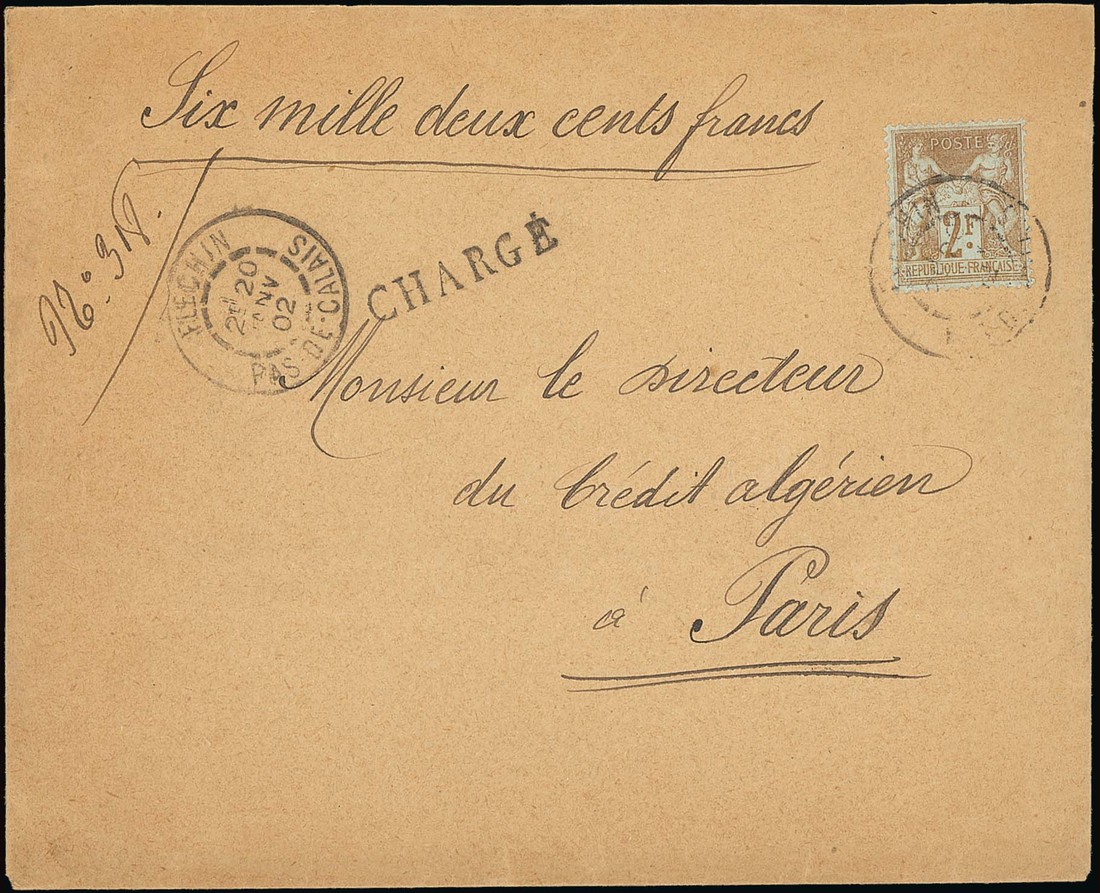 Six mille deux cents francs
POSTE
2F
REPUBLIQUE FRANÇAISE
FLÉCHIN
20
JANV
02
PAS-DE-CALAIS
CHARGÉ
Monsieur le Directeur
du Crédit algérien
à Paris